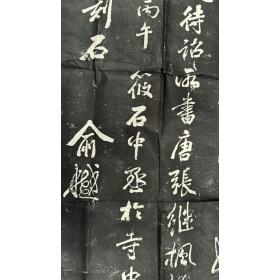 待詔㴑書唐張繼楓
丙午 筱石中丞於寺中
刻石
俞樾